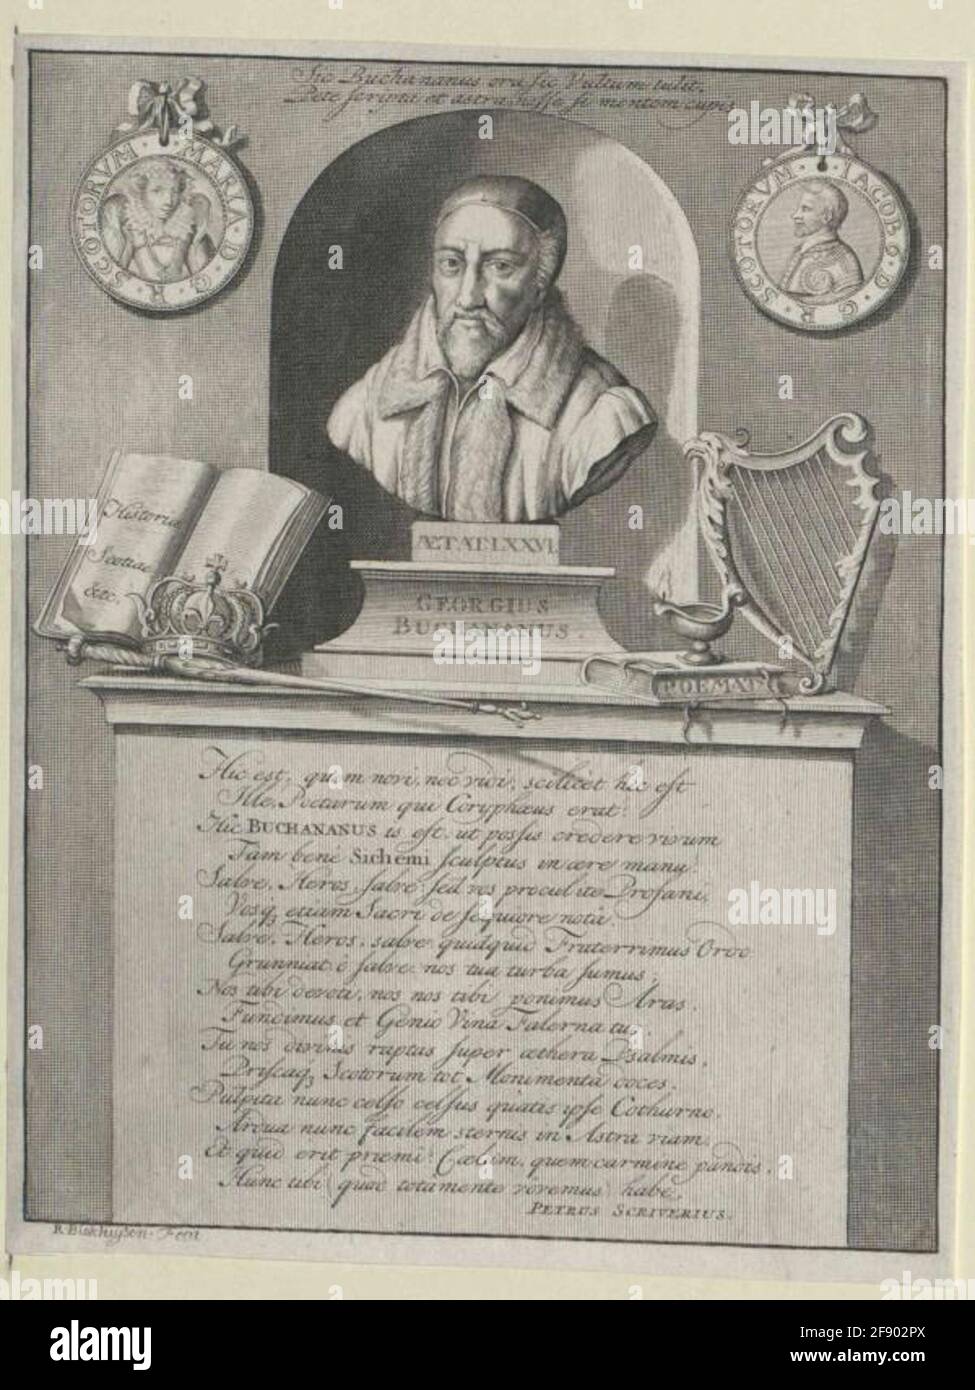 Sic Buchananus ora sic Vultum tulit.
Pete scripta et astra, nosse si mentem cupis
MARIA · D · G · R · SCOTORVM ·
IACOB 6 · D · G · R · SCOTORVM ·
Historia
Scotiae
&c.
ÆTAT. LXXVI.
GEORGIUS
BUCHANANUS.
POEMAT
Hic est, quem novi, nec vidi, scilicet hic est
Ille, Poetarum qui Coryphæus erat:
Hic BUCHANANUS is est, ut possis credere vivum
Tam bene Sichemi sculptus in ære manu.
Salve, Heros, salve: sed vos procul ite Profani,
Vosq; etiam Sacri de sequiore nota.
Salve, Heros, salve: quidquid Fraterrimus Ordo
Grunniat ô salve: nos tua turba sumus;
Nos tibi devoti, nos nos tibi ponimus Aras.
Fundimus et Genio Vina Falerna tuo.
Tu nos divinis raptas super æthera Psalmis,
Priscaq; Scotorum tot Monimenta doces.
Pulpita nunc celso celsus quatis ipse Cothurno.
Ardua nunc facilem sternis in Astra viam.
Et quid erit præmi? Cælum, quem carmine pandis,
Hunc tibi (quod tota mente vovemus) habe.
PETRUS SCRIVERIUS.
R. Blokhuysen. Fecit
alamy
alamy
Image ID: 2A902PX
www.alamy.com